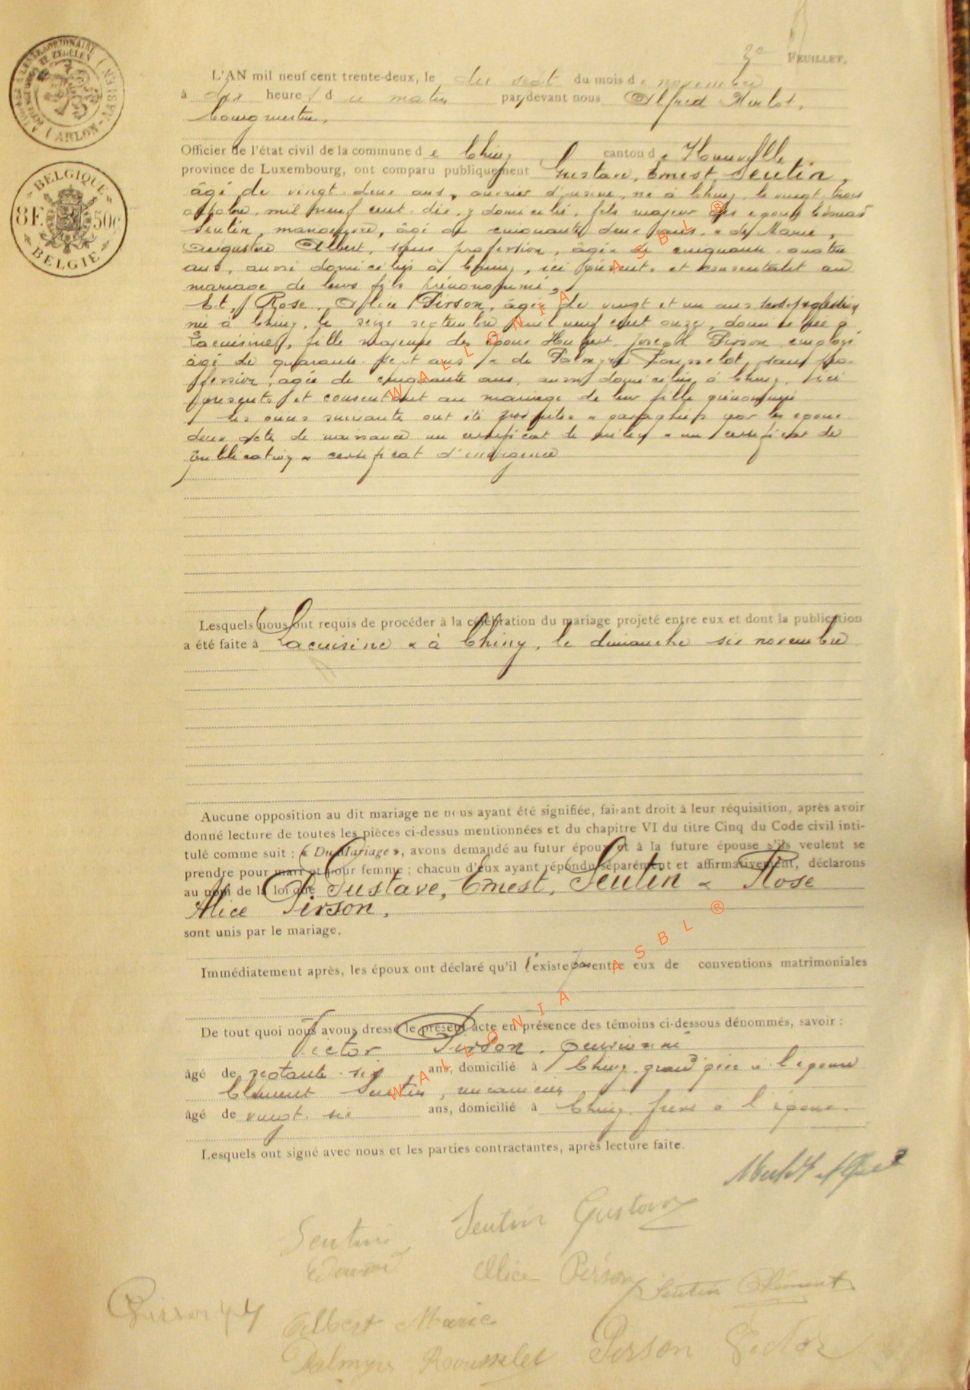 FEUILLET.
L'AN mil neuf cent trente-deux, le dix sept du mois de novembre
à dix heures du matin par devant nous Alfred Hurlot,
bourgmestre,
Officier de l'état civil de la commune de Chiny canton de
province de Luxembourg, ont comparu publiquement Gustave, Ernest, Seutin,
âgé de vingt deux ans, ouvrier d'usine, né à Chiny, le vingt trois
octobre mil neuf cent dix, y domicilié, fils majeur des époux Edouard
Seutin, manoeuvre, âgé de cinquante deux ans, & de Marie,
Augustine Albert, sans profession, âgée de cinquante quatre
ans, aussi domiciliés à Chiny, ici présents et consentant au
mariage de leur fils prénommé,
Et, Rose, Alice Pirson, âgée de vingt et un ans sans profession
née à Chiny, le seize septembre mil neuf cent onze, domiciliée à
Lacuisine, fille majeure des époux Joseph Pirson, employé
âgé de quarante ans & de Palmyre Rousselet, sans pro-
fession, âgée de cinquante ans, aussi domiciliés à Chiny, ici
présents et consentant au mariage de leur fille prénommée
suivantes ont été par les époux
deux acte de naissance un certificat de milice & un certificat de
publication & certificat d'indigence
Lesquels nous ont requis de procéder à la célébration du mariage projeté entre eux et dont la publication
a été faite à Lacuisine & à Chiny, le dimanche six novembre
Aucune opposition au dit mariage ne nous ayant été signifiée, faisant droit à leur réquisition, après avoir
donné lecture de toutes les pièces ci-dessus mentionnées et du chapitre VI du titre Cinq du Code civil inti-
tulé comme suit : « Du Mariage », avons demandé au futur époux et à la future épouse s'ils veulent se
prendre pour mari et pour femme ; chacun d'eux ayant répondu séparément et affirmativement, déclarons
au nom de la loi que Gustave, Ernest, Seutin & Rose
Alice Pirson,
sont unis par le mariage.
Immédiatement après, les époux ont déclaré qu'il n'existe pas entre eux de conventions matrimoniales
De tout quoi nous avons dressé le présent acte en présence des témoins ci-dessous dénommés, savoir :
Victor Pirson,
âgé de septante six ans, domicilié à Chiny, grand père à l'épouse
Clément Seutin,
âgé de vingt six ans, domicilié à Chiny, frère à l'époux
Lesquels ont signé avec nous et les parties contractantes, après lecture faite.
Seutin Gustave
Seutin
Edouard
Alice Pirson
Seutin Clément
Albert Marie
Palmyre Rousselet Pirson Victor
ARLON
BELGIQUE
8F. 50c
BELGIE
WALLONIA ASBL ®
WALLONIA ASBL ®